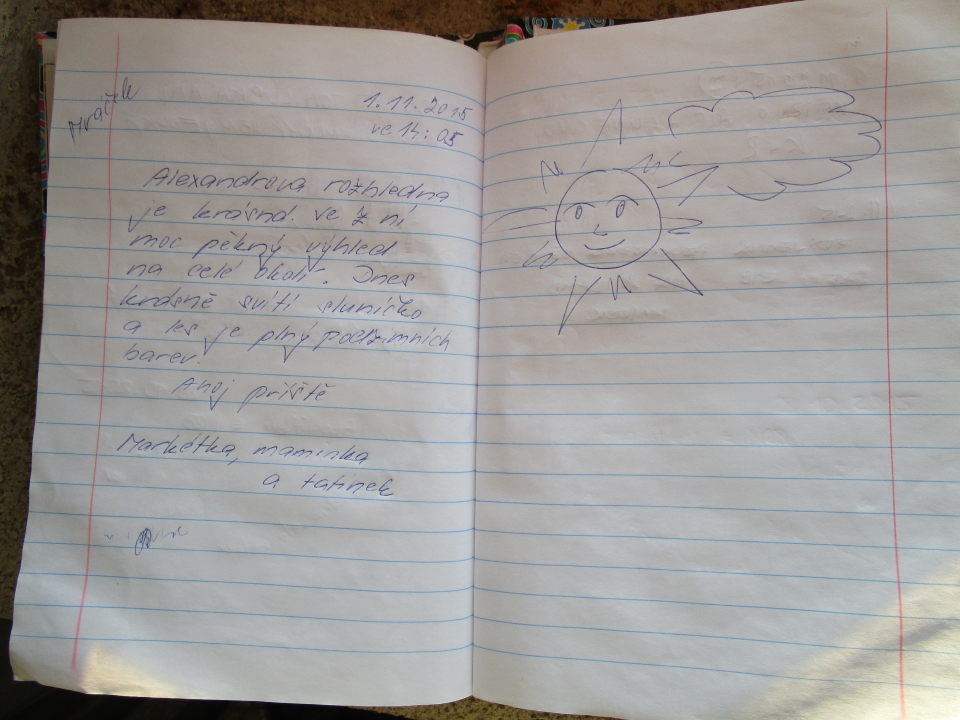 Mráček
1.11.2015
ve 14:05
Alexandrova rozhledna
je krásná. Je z ní
moc pěkný výhled
na celé okolí. Dnes
krásně svítí sluníčko
a les je plný podzimních
barev.
Ahoj příště
Markétka, maminka
a tatínek